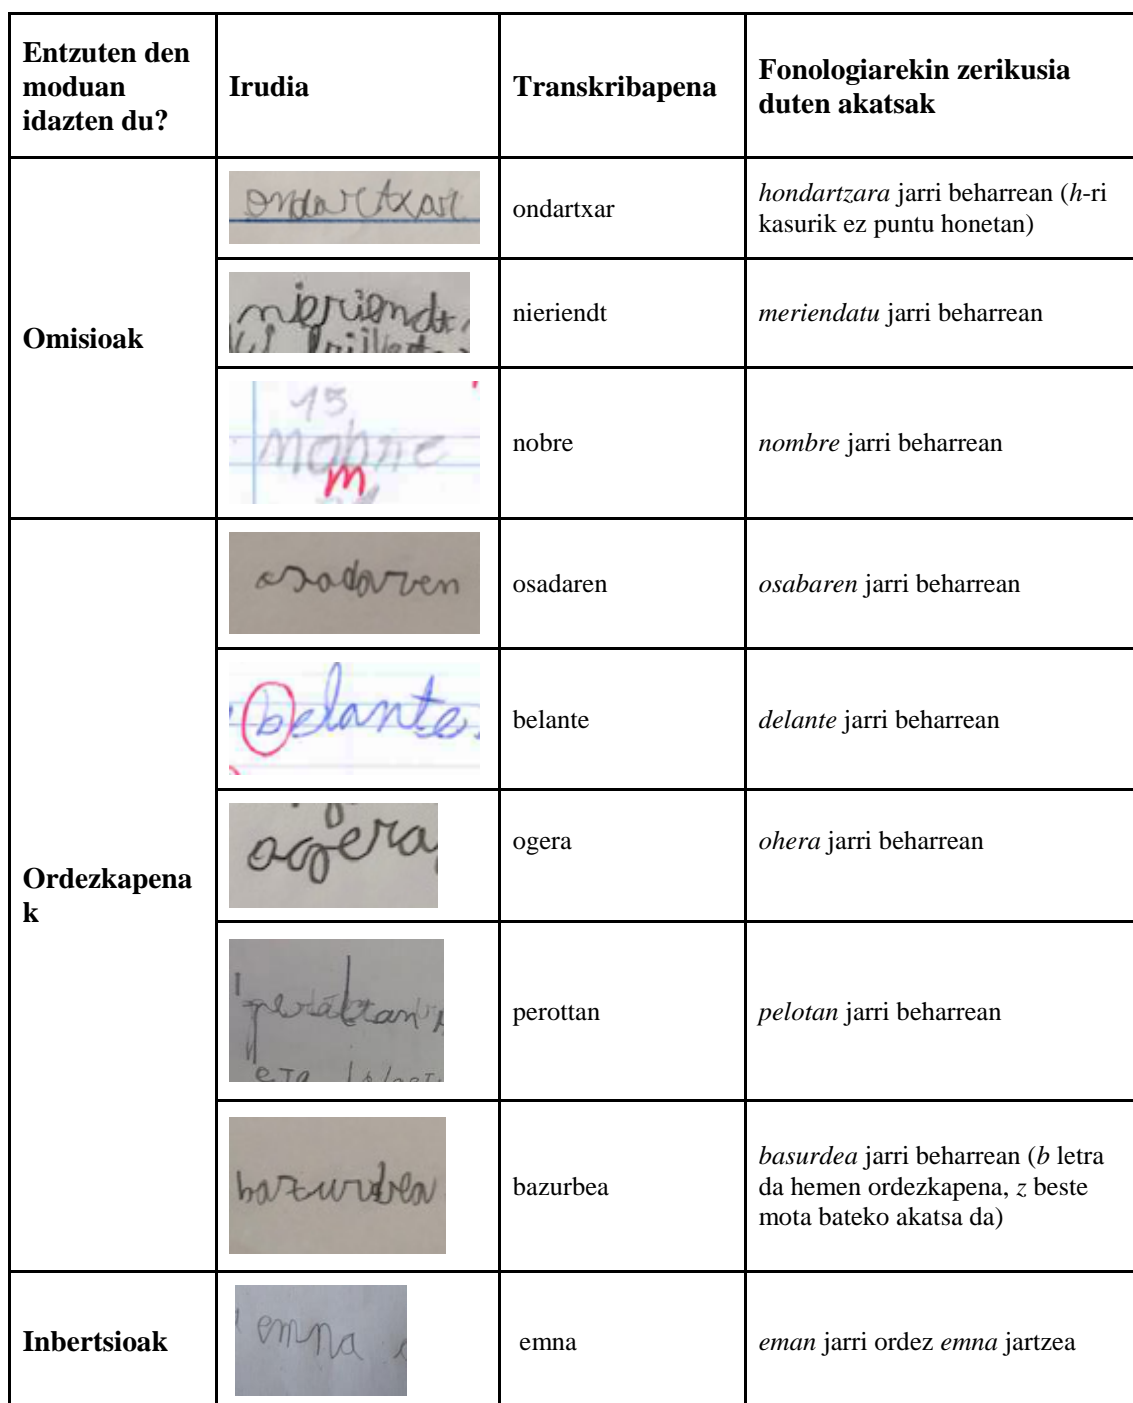 Entzuten den
moduan
idazten du?
Irudia
Transkribapena
Fonologiarekin zerikusia
duten akatsak
Omisioak
ondartxar
ondartxar
hondartzara jarri beharrean (h-ri
kasurik ez puntu honetan)
nieriendt
nieriendt
meriendatu jarri beharrean
15
nobre
m
nobre
nombre jarri beharrean
Ordezkapena
k
osadaren
osadaren
osabaren jarri beharrean
belante
belante
delante jarri beharrean
ogera
ogera
ohera jarri beharrean
perottan
perottan
pelotan jarri beharrean
bazurbea
bazurbea
basurdea jarri beharrean (b letra
da hemen ordezkapena, z beste
mota bateko akatsa da)
Inbertsioak
emna
emna
eman jarri ordez emna jartzea